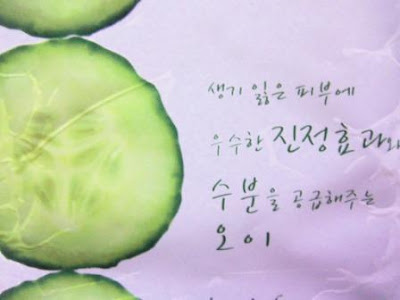 생기 잃은 피부에
우수한 진정효과와
수분을 공급해주는
오이